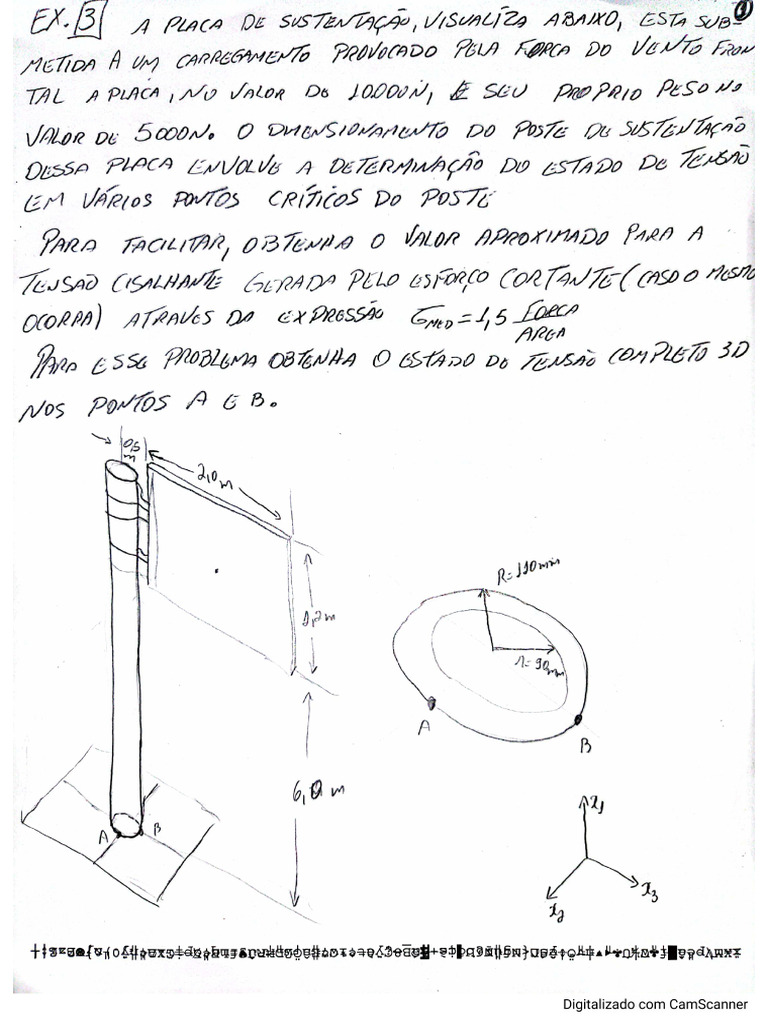 ①
EX. 3 A PLACA DE SUSTENTAÇÃO, VISUALIZA ABAIXO, ESTA SUB-
METIDA A UM CARREGAMENTO PROVOCADO PELA FORÇA DO VENTO FRON
TAL A PLACA, NO VALOR DE 10.000N, E SEU PROPRIO PESO NO
VALOR DE 5000N. O DIMENSIONAMENTO DO POSTE DE SUSTENTAÇÃO
DESSA PLACA ENVOLVE A DETERMINAÇÃO DO ESTADO DE TENSÃO
EM VÁRIOS PONTOS CRÍTICOS DO POSTE
PARA FACILITAR, OBTENHA O VALOR APROXIMADO PARA A
TENSÃO CISALHANTE GERADA PELO ESFORÇO CORTANTE (CASO O MESMO
OCORRA) ATRAVES DA EXPRESSÃO σMED = 1,5 FORÇA
AREA
PARA ESSE PROBLEMA OBTENHA O ESTADO DE TENSÃO COMPLETO 3D
NOS PONTOS A E B.
0,5
m
2,0m
R=110mm
1,2m
r=90mm
A
B
6,0 m
x1
A B
x3
x2
Digitalizado com CamScanner